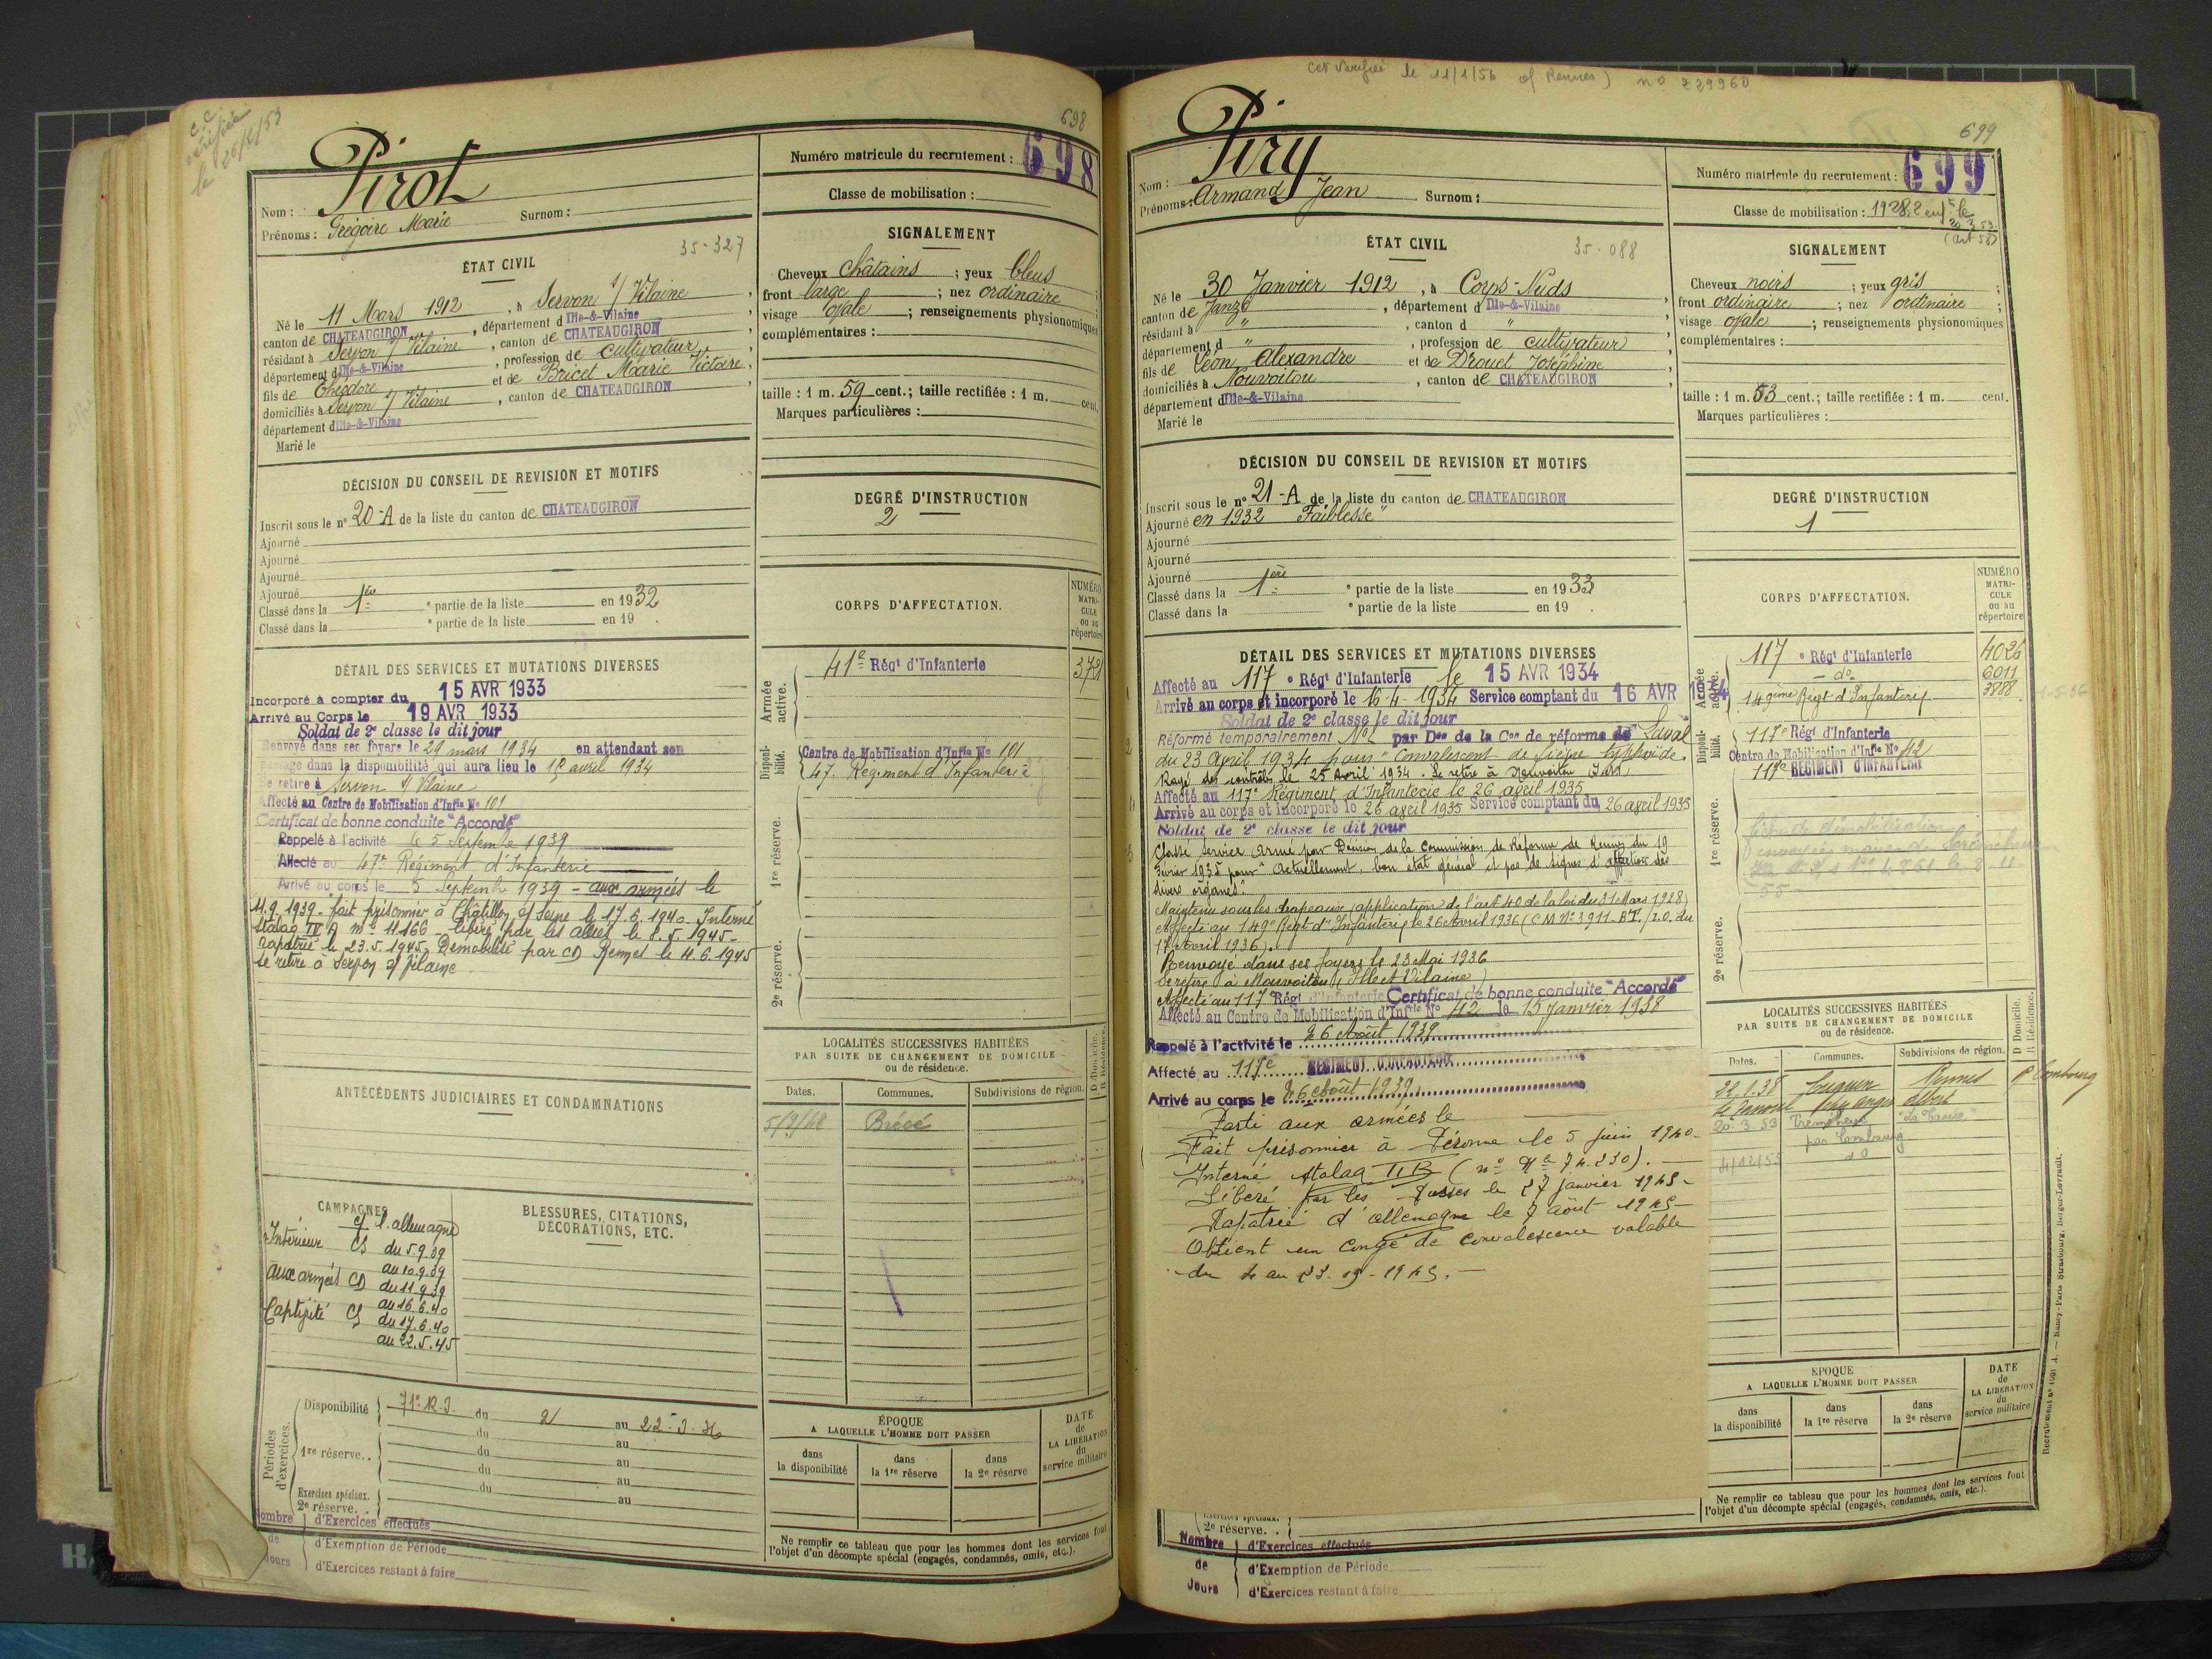 c.c
vérifiée
le 26/6/53
698
Pirot
Nom :
Prénoms : Grégoire Marie Surnom :
35-327
ÉTAT CIVIL
Né le 11 Mars 1912, à Servon s/ Vilaine,
canton de CHATEAUGIRON, département d Ille-&-Vilaine,
résidant à Servon s/ Vilaine, canton de CHATEAUGIRON,
département d Ille-&-Vilaine, profession de cultivateur,
fils de Théodore et de Bricet Marie Victoire,
domiciliés à Servon s/ Vilaine, canton de CHATEAUGIRON,
département d Ille-&-Vilaine
Marié le
DÉCISION DU CONSEIL DE REVISION ET MOTIFS
Inscrit sous le n° 20-A de la liste du canton de CHATEAUGIRON
Ajourné
Ajourné
Ajourné
Ajourné
Classé dans la 1ère partie de la liste en 1932
Classé dans la e partie de la liste en 19 .
DÉTAIL DES SERVICES ET MUTATIONS DIVERSES
Incorporé à compter du 15 AVR 1933
Arrivé au Corps le 19 AVR 1933
Soldat de 2e classe le dit jour
Renvoyé dans ses foyers le 29 mars 1934 en attendant son
passage dans la disponibilité qui aura lieu le 15 avril 1934
Se retire à Servon s/ Vilaine
Affecté au Centre de Mobilisation d'Infie No 101
Certificat de bonne conduite "Accordé"
Rappelé à l'activité le 5 Septembre 1939
Affecté au 47e Régiment d'Infanterie
Arrivé au corps le 5 Septembre 1939 - aux armées le
11.9.1939 - fait prisonnier à Châtillon s/ Seine le 17.6.1940. Interné
stalag IV A no 11166 - libéré par les alliés le 8.5.1945 -
rapatrié le 23.5.1945. Démobilisé par CD Rennes le 4.6.1945
se retire à Servon s/ Vilaine
ANTÉCÉDENTS JUDICIAIRES ET CONDAMNATIONS
CAMPAGNES
c/ l'allemagne
Intérieur CS du 5.9.39
au 10.9.39
aux armées CD du 11.9.39
au 16.6.40
Captivité CS du 17.6.40
au 22.5.45
BLESSURES, CITATIONS,
DÉCORATIONS, ETC.
Périodes d'exercices.
Disponibilité 71e R.I. du 2 au 22-3-36
du au
1re réserve.. du au
du au
Exercices spéciaux. du au
2e réserve. . au
Nombre d'Exercices effectués
de d'Exemption de Période
Jours d'Exercices restant à faire
Numéro matricule du recrutement : 698
Classe de mobilisation :
SIGNALEMENT
Cheveux châtains ; yeux bleus ;
front large ; nez ordinaire ;
visage ovale ; renseignements physionomiques
complémentaires :
taille : 1 m. 59 cent.; taille rectifiée : 1 m. cent.
Marques particulières :
DEGRÉ D'INSTRUCTION
2
CORPS D'AFFECTATION.
NUMÉRO MATRICULE ou au répertoire
Armée active.
41e Régt d'Infanterie 3721
Disponibilité.
Centre de Mobilisation d'Infie No 101
47. Régiment d'Infanterie
1re réserve.
2e réserve.
LOCALITÉS SUCCESSIVES HABITÉES
PAR SUITE DE CHANGEMENT DE DOMICILE
ou de résidence.
D. Domicile. R. Résidence.
Dates. Communes. Subdivisions de région.
5/9/48 Brécé
ÉPOQUE
A LAQUELLE L'HOMME DOIT PASSER
DATE de LA LIBÉRATION du service militaire
dans la disponibilité
dans la 1re réserve
dans la 2e réserve
Ne remplir ce tableau que pour les hommes dont les services font
l'objet d'un décompte spécial (engagés, condamnés, omis, etc.).
le 11/1/56 Rennes) no 229960
699
Piry
Nom :
Prénoms : Armand Jean Surnom :
35-088
ÉTAT CIVIL
Né le 30 Janvier 1912, à Corps-Nuds,
canton de Janzé, département d Ille-&-Vilaine,
résidant à ", canton d ",
département d ", profession de cultivateur,
fils de Léon Alexandre et de Drouet Joséphine,
domiciliés à Nouvoitou, canton de CHATEAUGIRON,
département d Ille-&-Vilaine
Marié le
DÉCISION DU CONSEIL DE REVISION ET MOTIFS
Inscrit sous le n° 21-A de la liste du canton de CHATEAUGIRON
Ajourné en 1932 "Faiblesse"
Ajourné
Ajourné
Ajourné
Classé dans la 1ère partie de la liste en 1933
Classé dans la e partie de la liste en 19 .
DÉTAIL DES SERVICES ET MUTATIONS DIVERSES
Affecté au 117e Régt d'Infanterie le 15 AVR 1934
Arrivé au corps et incorporé le 16-4-1934 Service comptant du 16 AVR 1934
Soldat de 2e classe le dit jour
Réformé temporairement No 1 par Don de la Con de réforme de Laval
du 23 Avril 1934 pour "Convalescent de fièvre typhoïde.
Rayé des contrôles le 25 Avril 1934. Se retire à Nouvoitou
Affecté au 117e Régiment d'Infanterie le 26 avril 1935
Arrivé au corps et incorporé le 26 avril 1935 Service comptant du 26 avril 1935
Soldat de 2e classe le dit jour
Classé service armé par Décision de la Commission de Réforme de Rennes du 19
Février 1935 pour "Actuellement, bon état général et pas de signes d'affection des
divers organes".
Maintenu sous les drapeaux (application de l'art 40 de la loi du 31 Mars 1928)
Affecté au 149e Régt d'Infanterie le 26 Avril 1936 (C.M. No 3911-B.T./2.0. du
17 Avril 1936).
Renvoyé dans ses foyers le 23 Mai 1936
Se retire à Nouvoitou (Ille et Vilaine)
Affecté au 117 Régt d'Infanterie Certificat de bonne conduite "Accordé"
Affecté au Centre de Mobilisation d'Infie No 42 le 15 Janvier 1938
Rappelé à l'activité le 26 Août 1939
Affecté au 117e RÉGIMENT D'INFANTERIE
Arrivé au corps le 26 Août 1939
Parti aux armées le
Fait prisonnier à Péronne le 5 juin 1940 -
Interné Stalag II B (no 74.230).
Libéré par les Russes le 27 janvier 1945 -
Rapatrié d'allemagne le 7 août 1945 -
Obtient un congé de convalescence valable
2e réserve. .
Nombre d'Exercices effectués
de d'Exemption de Période
Jours d'Exercices restant à faire
Numéro matricule du recrutement : 699
Classe de mobilisation : 1928, 2 enfts le
20.3.53
(art 58)
SIGNALEMENT
Cheveux noirs ; yeux gris ;
front ordinaire ; nez ordinaire ;
visage ovale ; renseignements physionomiques
complémentaires :
taille : 1 m. 53 cent.; taille rectifiée : 1 m. cent.
Marques particulières :
DEGRÉ D'INSTRUCTION
1
CORPS D'AFFECTATION.
NUMÉRO MATRICULE ou au répertoire
Armée active.
117e Régt d'Infanterie 4026
- do - 6011
149ème Régt d'Infanterie 3788
Disponibilité.
117e Régt d'Infanterie
Centre de Mobilisation d'Infie No 42
117e RÉGIMENT D'INFANTERIE
1re réserve.
2e réserve.
LOCALITÉS SUCCESSIVES HABITÉES
PAR SUITE DE CHANGEMENT DE DOMICILE
ou de résidence.
D. Domicile. R. Résidence.
Dates. Communes. Subdivisions de région.
22.1.38 Rennes
20.3.53 Tréméheuc
par Combourg
4/12/55 do
ÉPOQUE
A LAQUELLE L'HOMME DOIT PASSER
DATE de LA LIBÉRATION du service militaire
dans la disponibilité
dans la 1re réserve
dans la 2e réserve
Ne remplir ce tableau que pour les hommes dont les services font
l'objet d'un décompte spécial (engagés, condamnés, omis, etc.).
Nancy-Paris Strasbourg, Berger-Levrault.